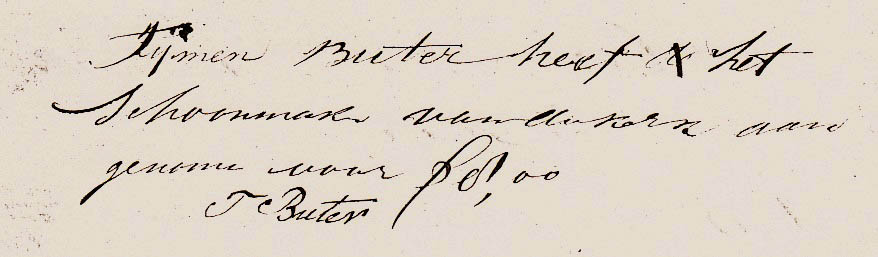 Tijmen Buter heef het
Schoonmake van de kerk aan
genome voor f 8,00
T Buter